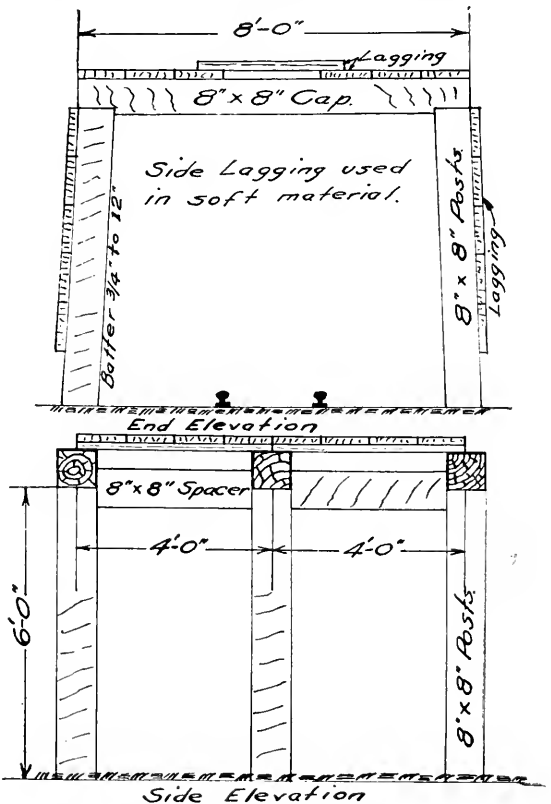 8'-0"
Lagging
8" x 8" Cap.
Side Lagging used
in soft material.
Batter 3/4" to 12"
8" x 8" Posts.
Lagging
End Elevation
8" x 8" Spacer
4'-0"
4'-0"
6'-0"
8" x 8" Posts.
Side Elevation